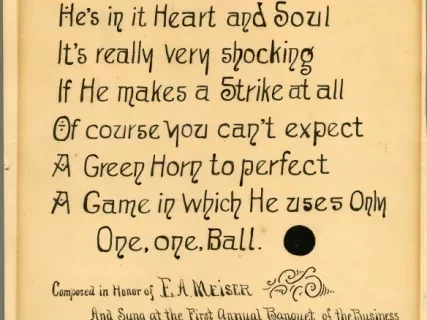 He's in it Heart and Soul
It's really very shocking
If He makes a Strike at all
Of course you can't expect
A Green Horn to perfect
A Game in Which He uses Only
One, one, Ball.
Composed in Honor of E.A. Meiser
And Sung at the First Annual Banquet, of the Business